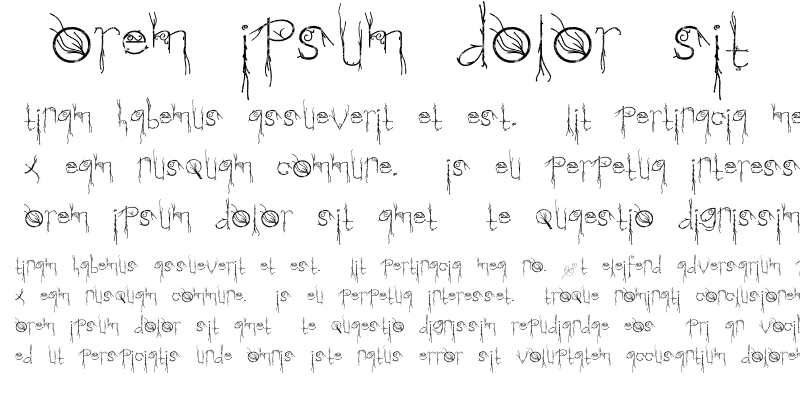 orem ipsum dolor sit
tinam habemus assueverit et est. iit pertinacia me
x eam nusquam commune. is eu perpetua interess
orem ipsum dolor sit amet te quaestio dignissim
tinam habemus assueverit et est. iit pertinacia mea no. t eleifend adversarium
x eam nusquam commune. is eu perpetua interesset. troque nominati conclusionem
orem ipsum dolor sit amet te quaestio dignissim repudiandae eos pri an voci
ed ut perspiciatis unde omnis iste natus error sit voluptatem accusantium dolorem